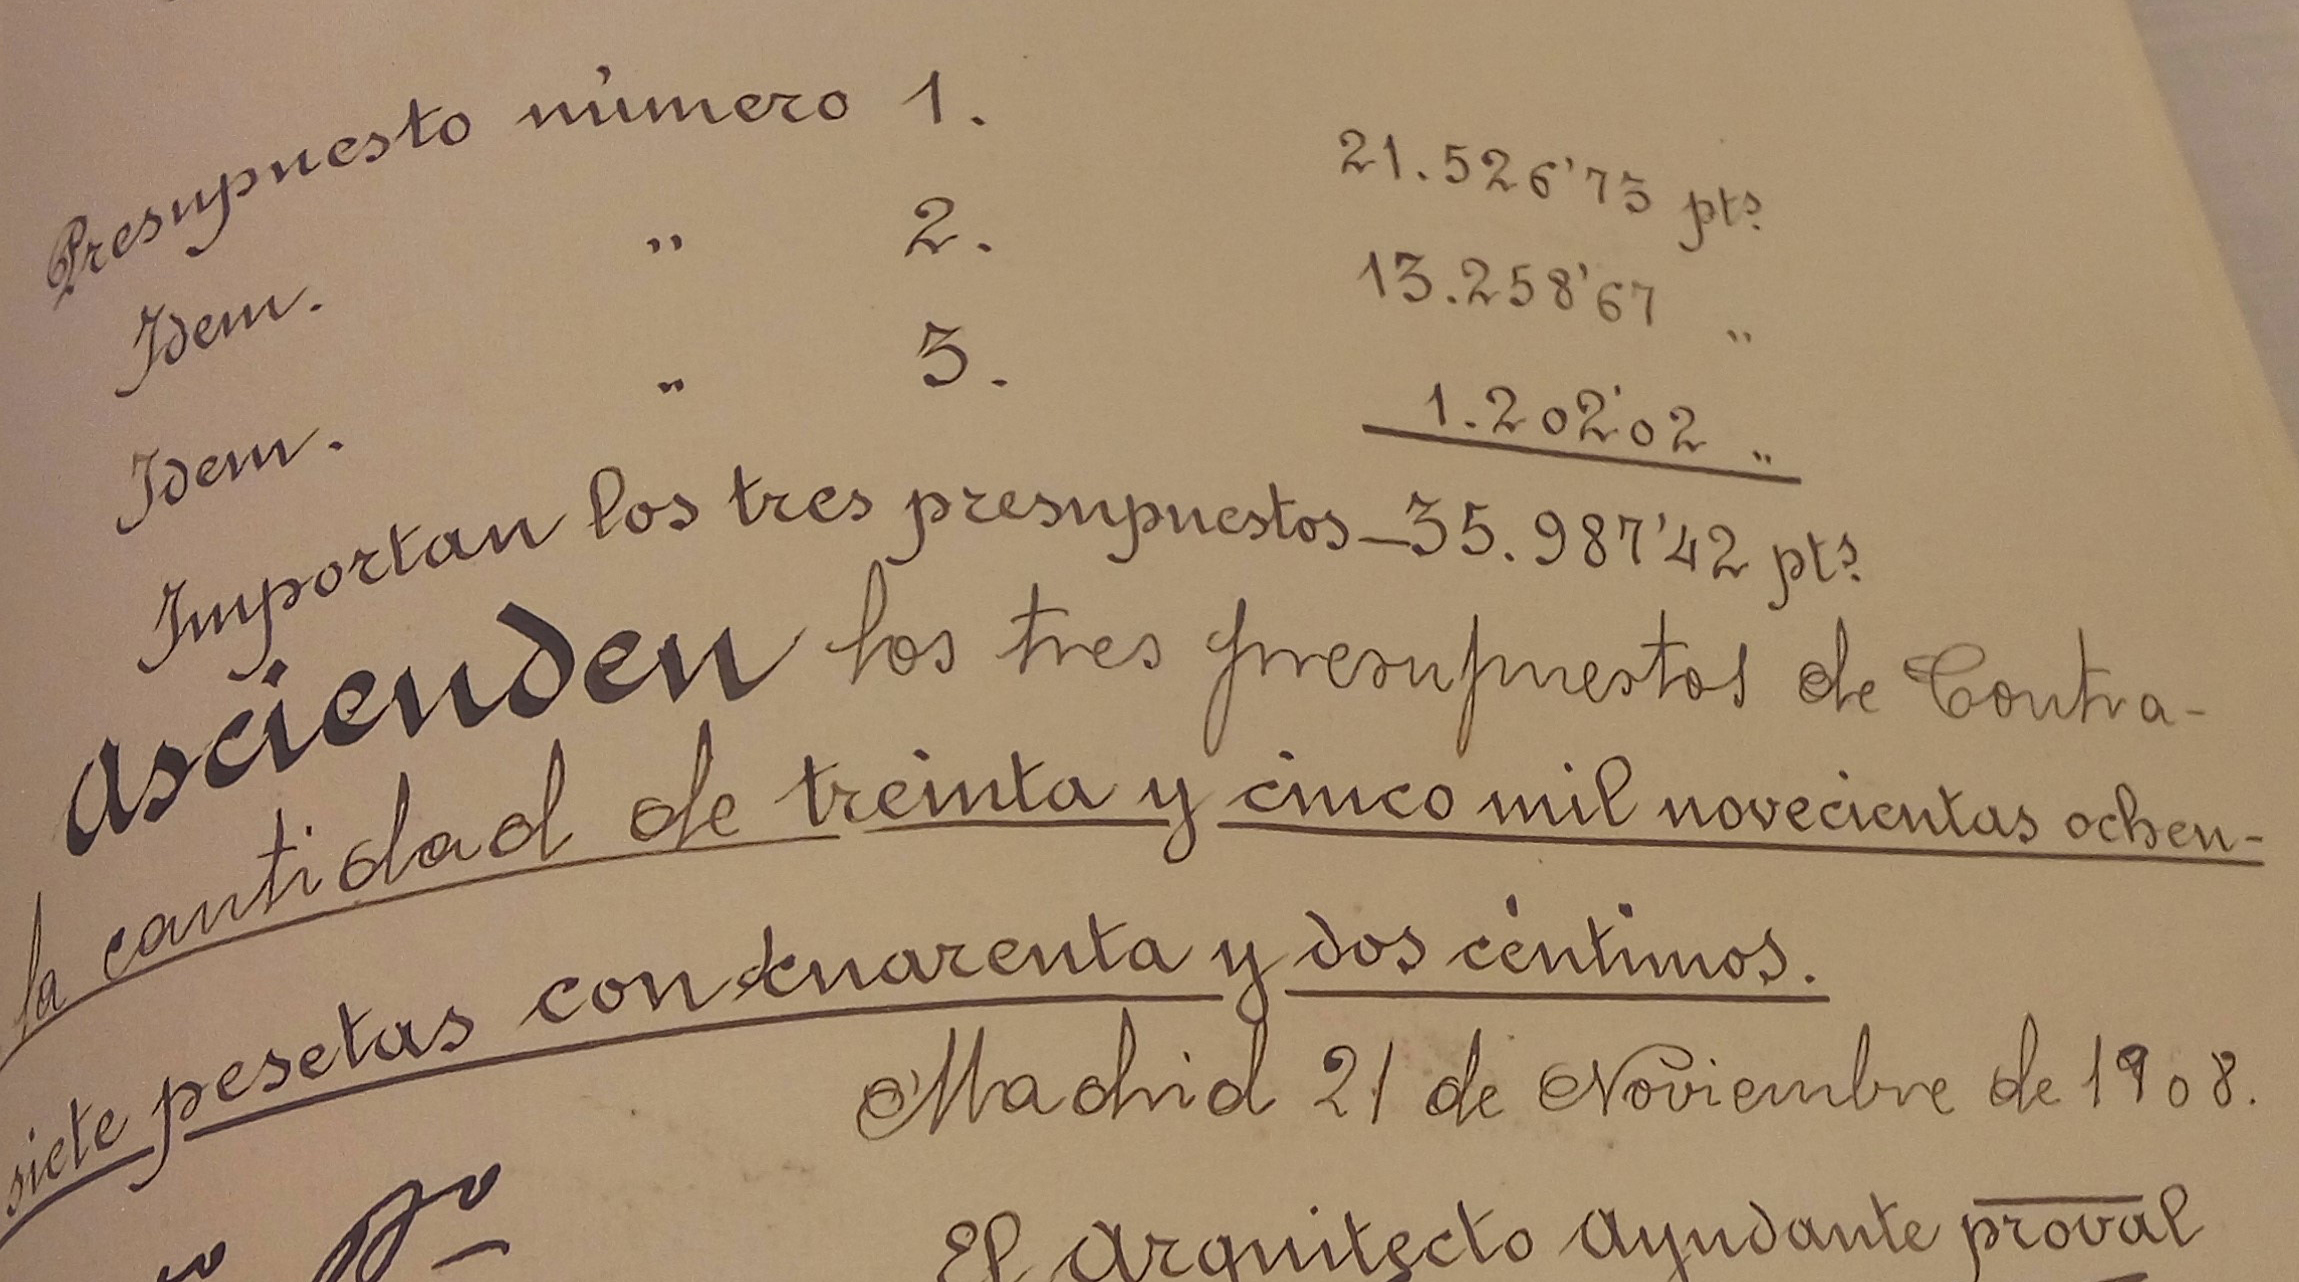 Presupuesto número 1. 21.526'73 pts.
Idem. " 2. 13.258'67 "
Idem. " 3. 1.202'02 "
Importan los tres presupuestos_35.987'42 pts.
Ascienden los tres presupuestos de Contra-
la cantidad de treinta y cinco mil novecientas ochen-
siete pesetas con cuarenta y dos céntimos.
Madrid 21 de Noviembre de 1908.
El Arquitecto Ayudante proval